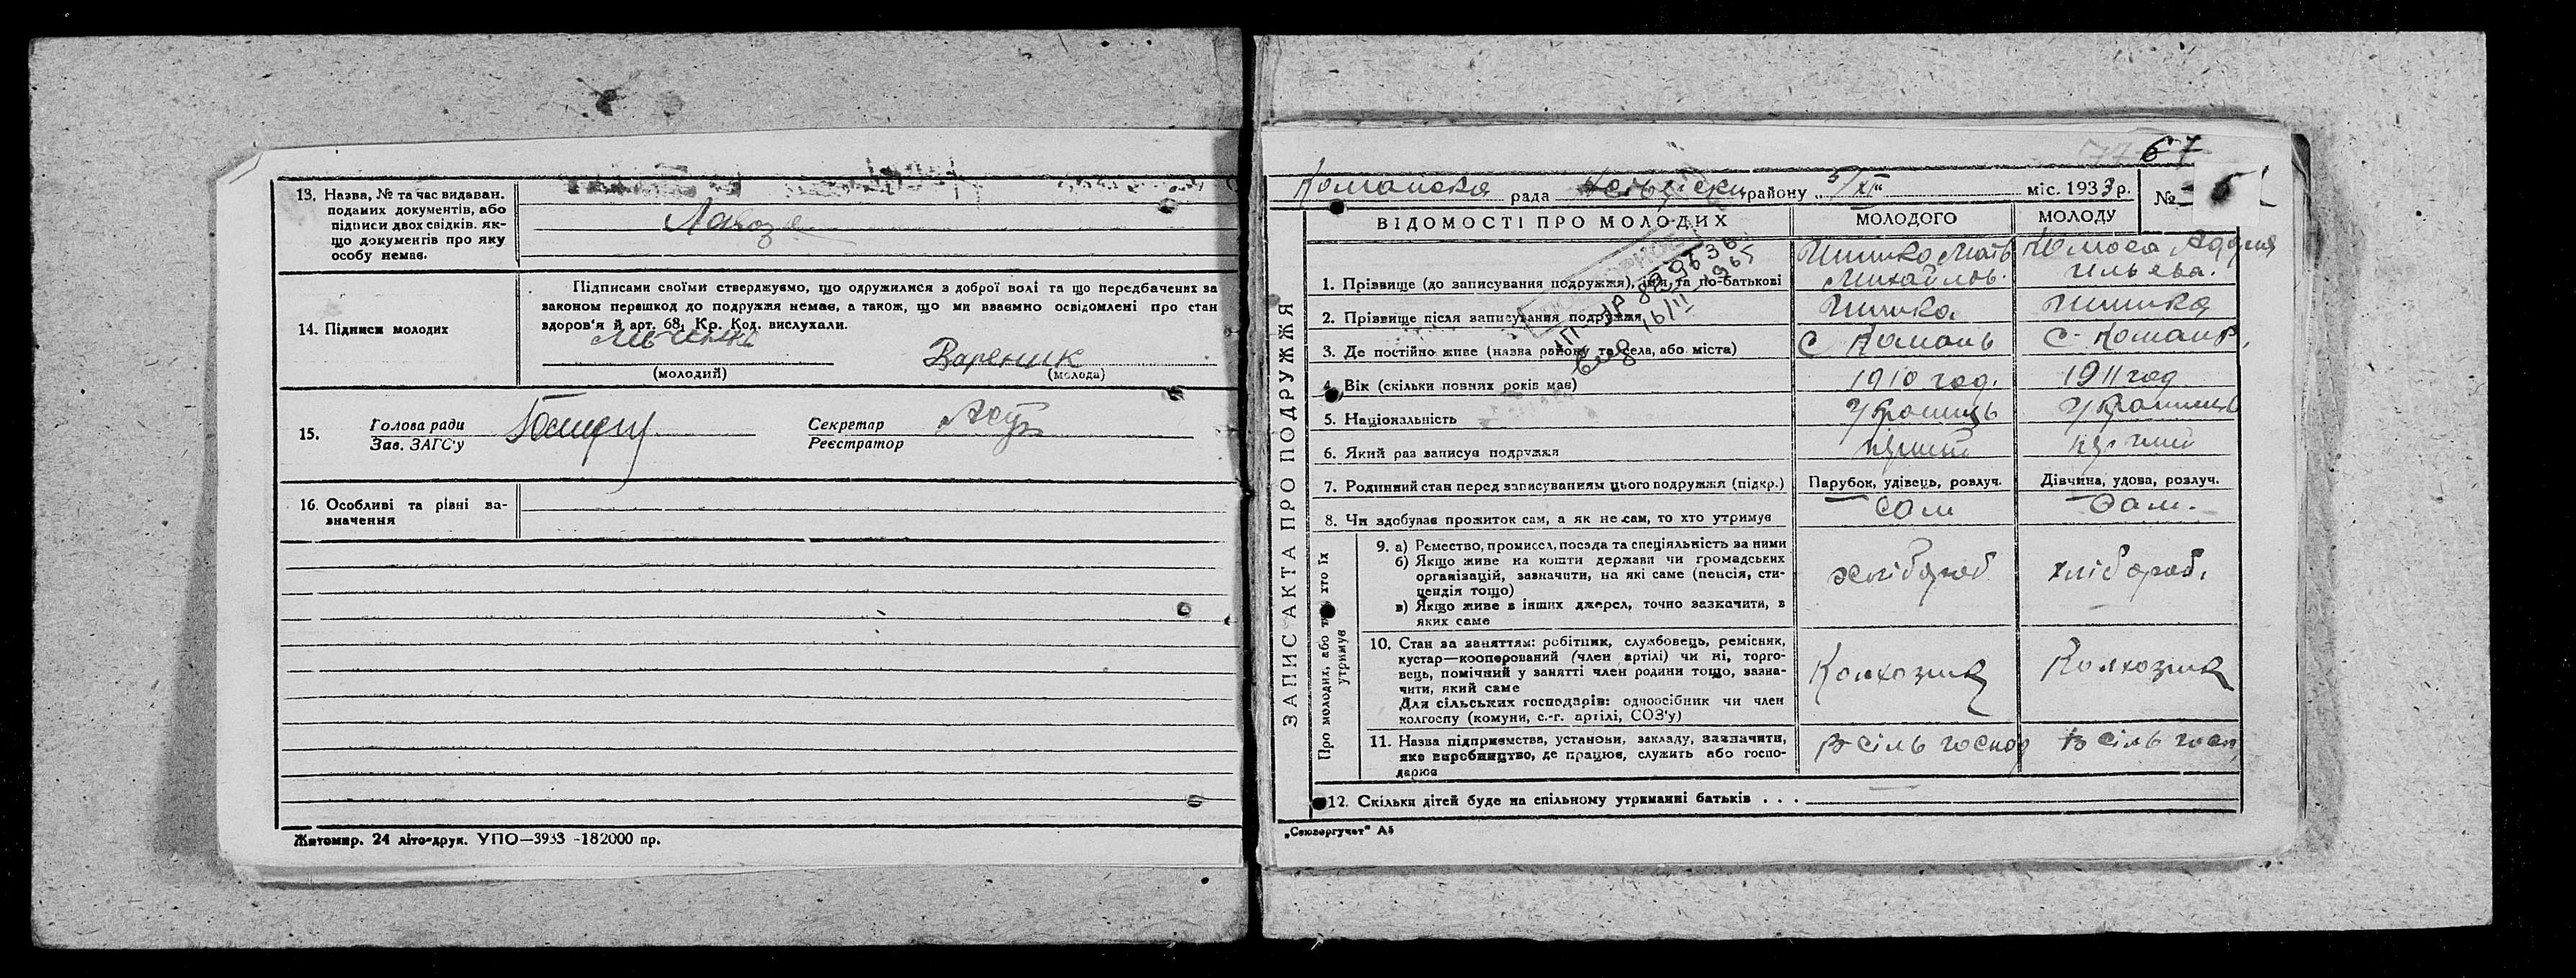 13. Назва, № та час видаван.
поданих документів, або
підписи двох свідків. як-
що документів про яку
особу немає.
14. Підписи молодих
Підписами своїми стверджуємо, що одружилися з доброї волі та що передбачених за
законом перешкод до подружжя немає, а також, що ми взаємно освідомлені про стан
здоров'я й арт. 68, Кр. Код. вислухали.
Вареник
(молодий) (молода)
15. Голова ради
Зав. ЗАГС'у
Секретар
Реєстратор
16. Особливі та рівні за-
значення
Житомир. 24 літо-друк. УПО—3933 -182000 пр.
67
рада району 5/XI міс. 1933 р. №
ВІДОМОСТІ ПРО МОЛОДИХ МОЛОДОГО МОЛОДУ
ЗАПИС АКТА ПРО ПОДРУЖЖЯ
1. Прізвище (до записування подружжя), ім'я та по-батькові
2. Прізвище після записування подружжя
3. Де постійно живе (назва району та села, або міста) с Комань с. Комань
4. Вік (скільки повних років має) 1910 год. 1911 год
5. Національність Українець Українець
6. Який раз записує подружжя перший перший
7. Родинний стан перед записуванням цього подружжя (підкр.) Парубок, удівець, розлуч. Дівчина, удова, розлуч.
8. Чи здобуває прожиток сам, а як не сам, то хто утримує сам сам.
Про молодих, або хто їх
утримує
9. а) Ремество, промисел, посада та спеціяльність за ними
б) Якщо живе на кошти держави чи громадських
організацій, зазначити, на які саме (пенсія, сти-
пендія тощо)
в) Якщо живе з інших джерел, точно зазначити, з
яких саме
хлібороб хлібороб.
10. Стан за заняттям: робітник, службовець, ремісник,
кустар—кооперований (член артілі) чи ні, торго-
вець, помічний у занятті член родини тощо, зазна-
чити, який саме
Для сільських господарів: одноосібник чи член
колгоспу (комуни, с.-г. артілі, СОЗ'у)
Колхозник Колхозник
11. Назва підприємства, установи, закладу, зазначити,
яке виробництво, де працює, служить або госпо-
дарює
в сіль господ в сіль госп
12. Скільки дітей буде на спільному утриманні батьків . . .
„Союзоргучет" А5